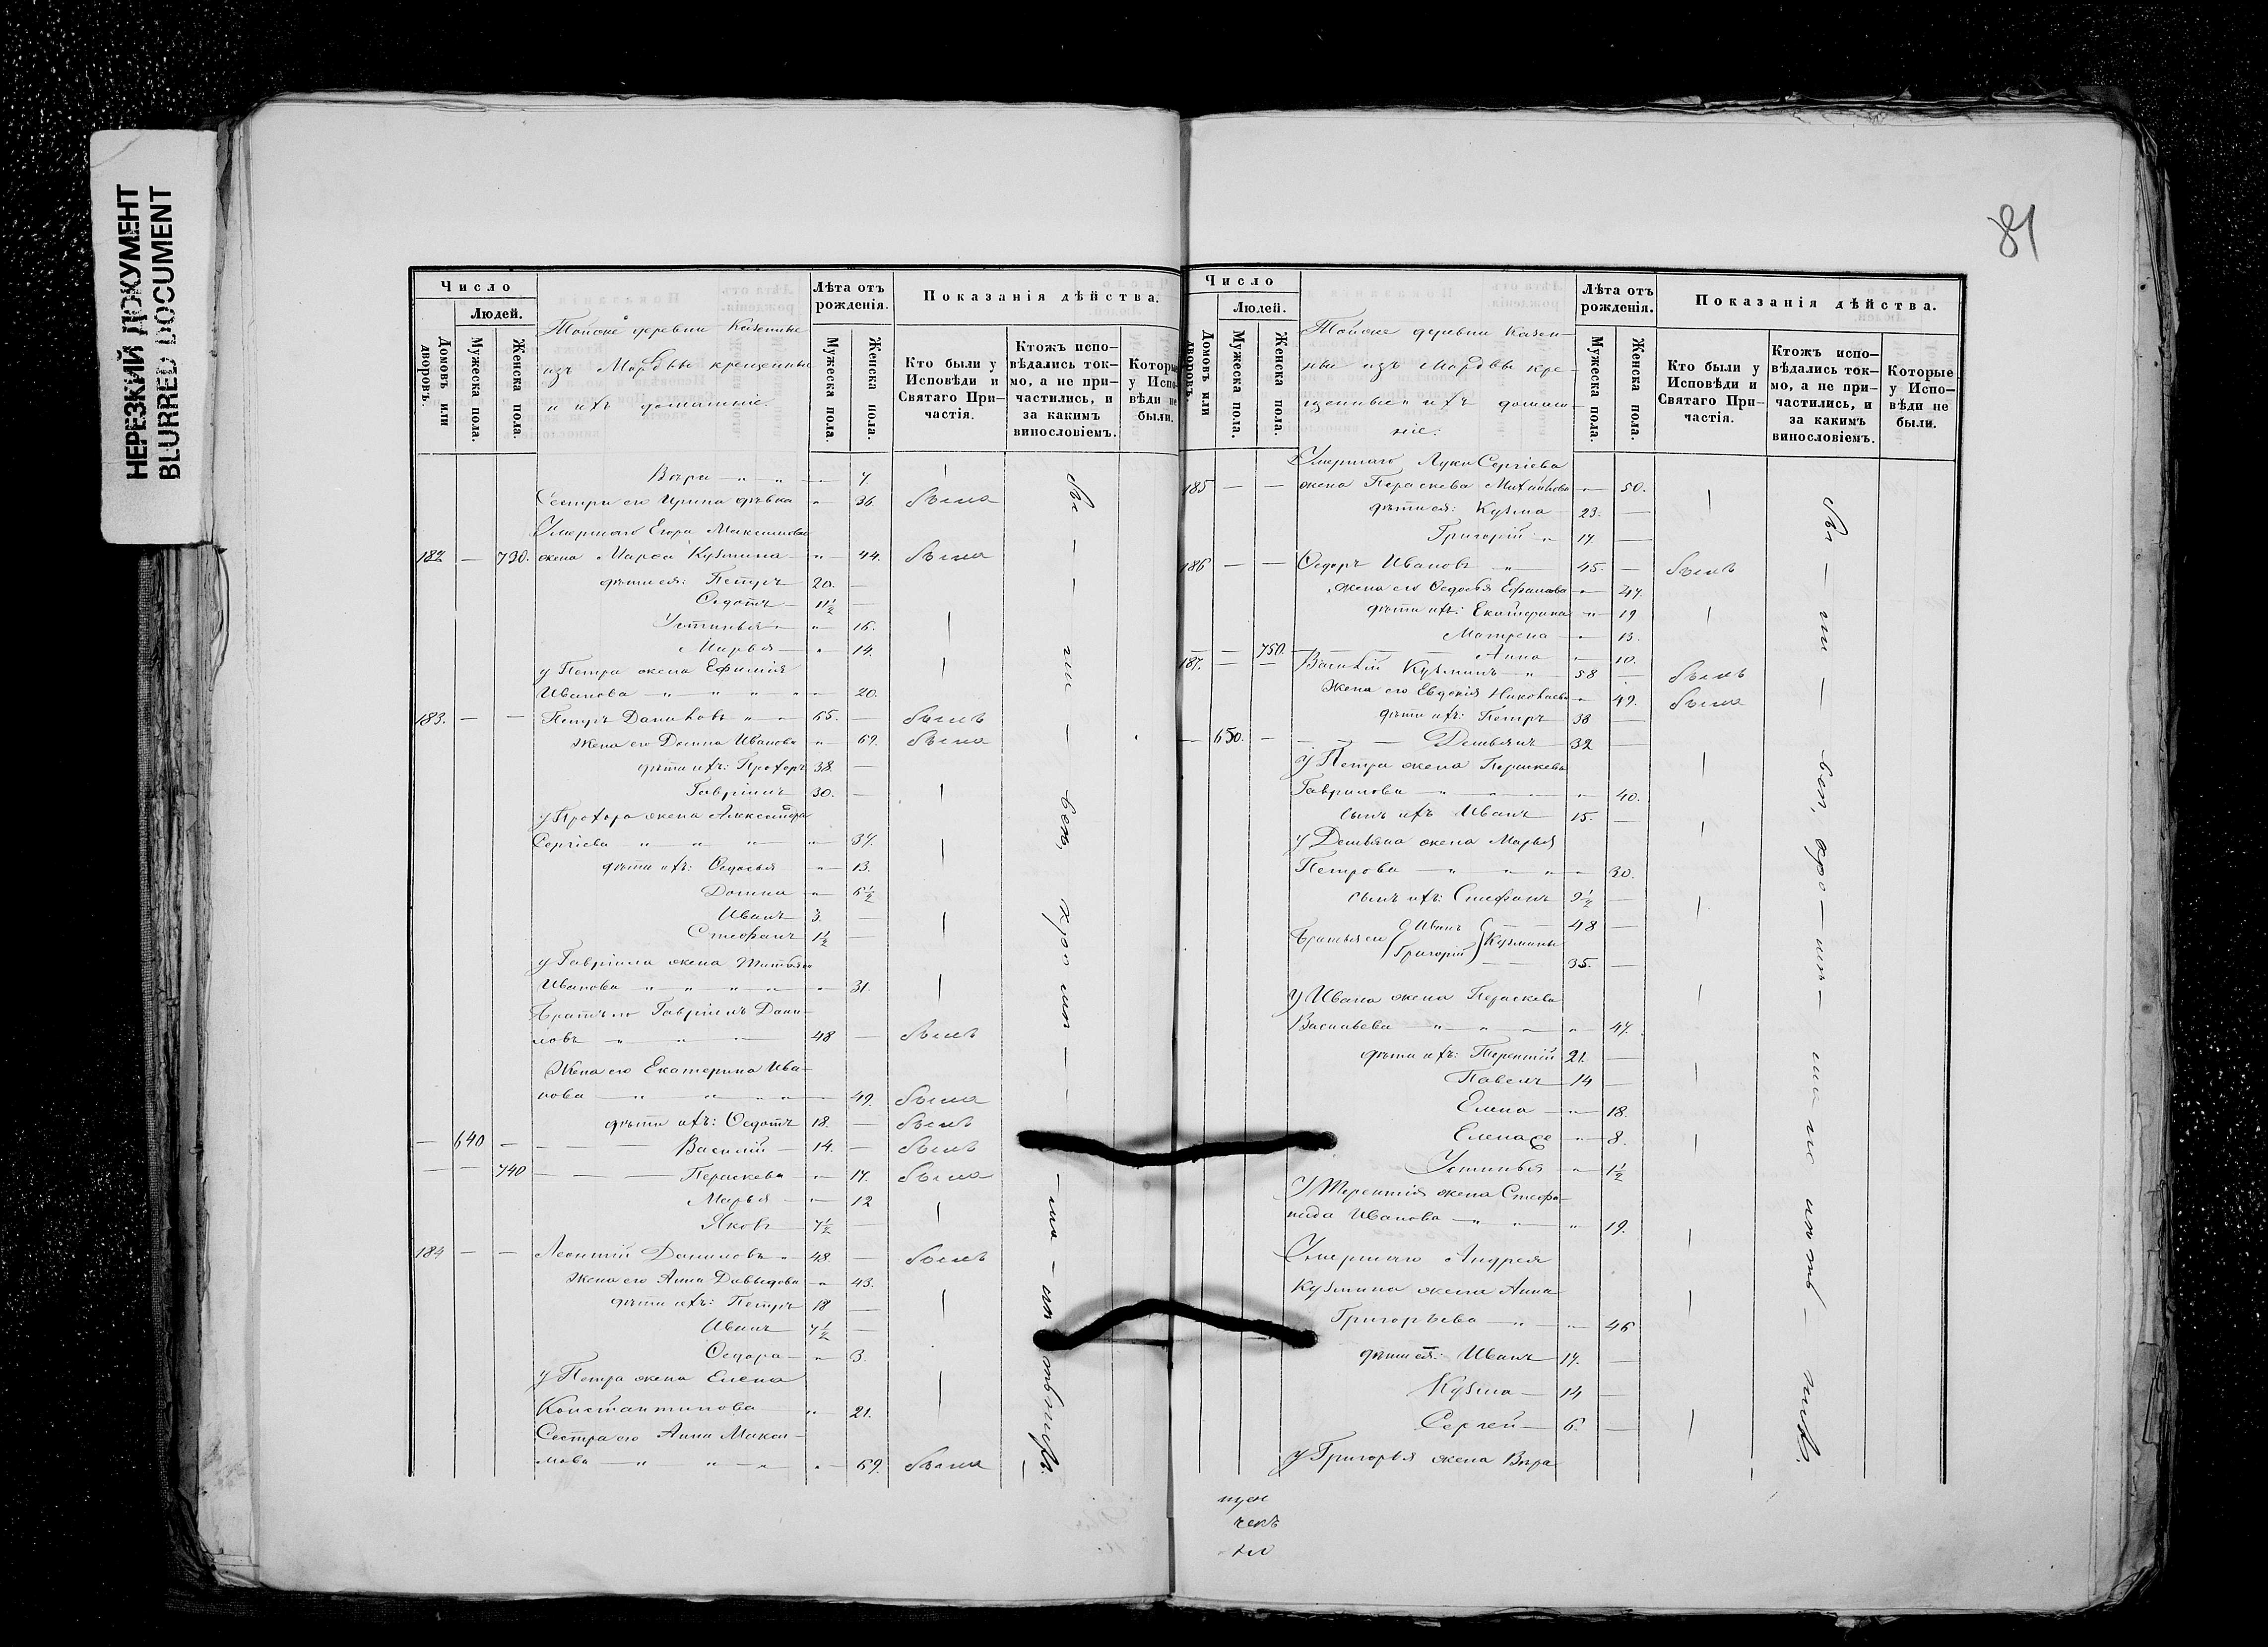 НЕРЕЗКИЙ ДОКУМЕНТ
BLURRED DOCUMENT
81
Число
Людей.
Домовъ или дворовъ.
Мужеска пола.
Женска пола.
Тойже деревни Казенные
изъ Мордвы крещенные
и ихъ домашніе.
Лѣта отъ рожденія.
Мужеска пола.
Женска пола.
Показанія дѣйства.
Кто были у Исповѣди и Святаго Причастія.
Ктожъ исповѣдались токмо, а не причастились, и за какимъ винословіемъ.
Которые у Исповѣди не были.
Вѣра — „ — „ — 7.
Сестра его Ирина дѣвка „ 36. была
Умершаго Егора Максимова
182 — 730. жена Марѳа Кузмина „ 44. была
дѣти ея: Петръ 20. —
Ѳедотъ 11½ —
Устинья „ 16.
Марья „ 14.
у Петра жена Ефимія
Иванова — „ „ „ „ — 20.
183. — — Петръ Даниловъ „ — 65. — былъ
Жена его Домна Иванова „ 67. была
дѣти ихъ: Прохоръ 38. —
Гавріилъ 30. —
у Прохора жена Александра
Сергіева „ „ „ „ 37.
дѣти ихъ: Ѳедосья „ 13.
Домна „ 6½
Иванъ 3. —
Стефанъ 1½ —
у Гавріила жена Татьяна
Иванова — „ „ „ — 31.
Братъ его Гавріилъ Дани-
ловъ „ „ „ 48 — былъ
Жена его Екатерина Ива-
нова — „ „ „ — 49. была
дѣти ихъ: Ѳедотъ 18. — былъ
— 640 — — — Василій 14. — былъ
— — 740 — — Параскева „ 17. была
Марья „ 12
Яковъ 7½ —
184 — — Леонтій Даниловъ „ 48. — былъ
Жена его Анна Давыдова „ 43.
дѣти ихъ: Петръ 18 —
Иванъ 7½ —
Ѳедора „ 3.
у Петра жена Елена
Константинова „ 21.
Сестра его Анна Макси-
мова — „ „ „ „ 69. была
Число
Людей.
Домовъ или дворовъ.
Мужеска пола.
Женска пола.
Тойже деревни Казен-
ные изъ Мордвы кре-
щенные и ихъ домаш-
ніе.
Лѣта отъ рожденія.
Мужеска пола.
Женска пола.
Показанія дѣйства.
Кто были у Исповѣди и Святаго Причастія.
Ктожъ исповѣдались токмо, а не причастились, и за какимъ винословіемъ.
Которые у Исповѣди не были.
Умершаго Луки Сергіева
185 — — жена Параскева Михайлова „ 50.
дѣти ея: Кузма 23. —
Григорій „ 17. —
186 — — Ѳедоръ Ивановъ „ 45. — былъ
Жена его Ѳедосья Ефимова „ 47.
дѣти ихъ: Екатерина „ 19
Матрена „ 13.
— — 750. — Анна „ 10.
187. — — Василій Кузминъ „ 58 — былъ
Жена его Евдокія Николаева „ 49. была
дѣти ихъ: Петръ 38 —
— 650. — — — Демьянъ 32 —
у Петра жена Параскева
Гаврилова — „ — „ — 40.
сынъ ихъ Иванъ 15. —
у Демьяна жена Марья
Петрова — „ „ „ „ 30.
сынъ ихъ: Стефанъ 9½ —
Братья его Иванъ Кузмины 48 —
Григорій 35. —
у Ивана жена Параскева
Васильева — „ — „ — „ 47.
дѣти ихъ: Терентій 21. —
Павелъ 14 —
Елена „ 18.
Елена „ 8.
Устинья „ 1½
у Терентія жена Стефа-
нида Иванова — „ „ „ 19.
Умершаго Андрея
Кузмина жена Анна
Григорьева — „ — „ 46
дѣти ея: Иванъ 17. —
Кузма 14 —
Сергей 6. —
у Григорья жена Вѣра